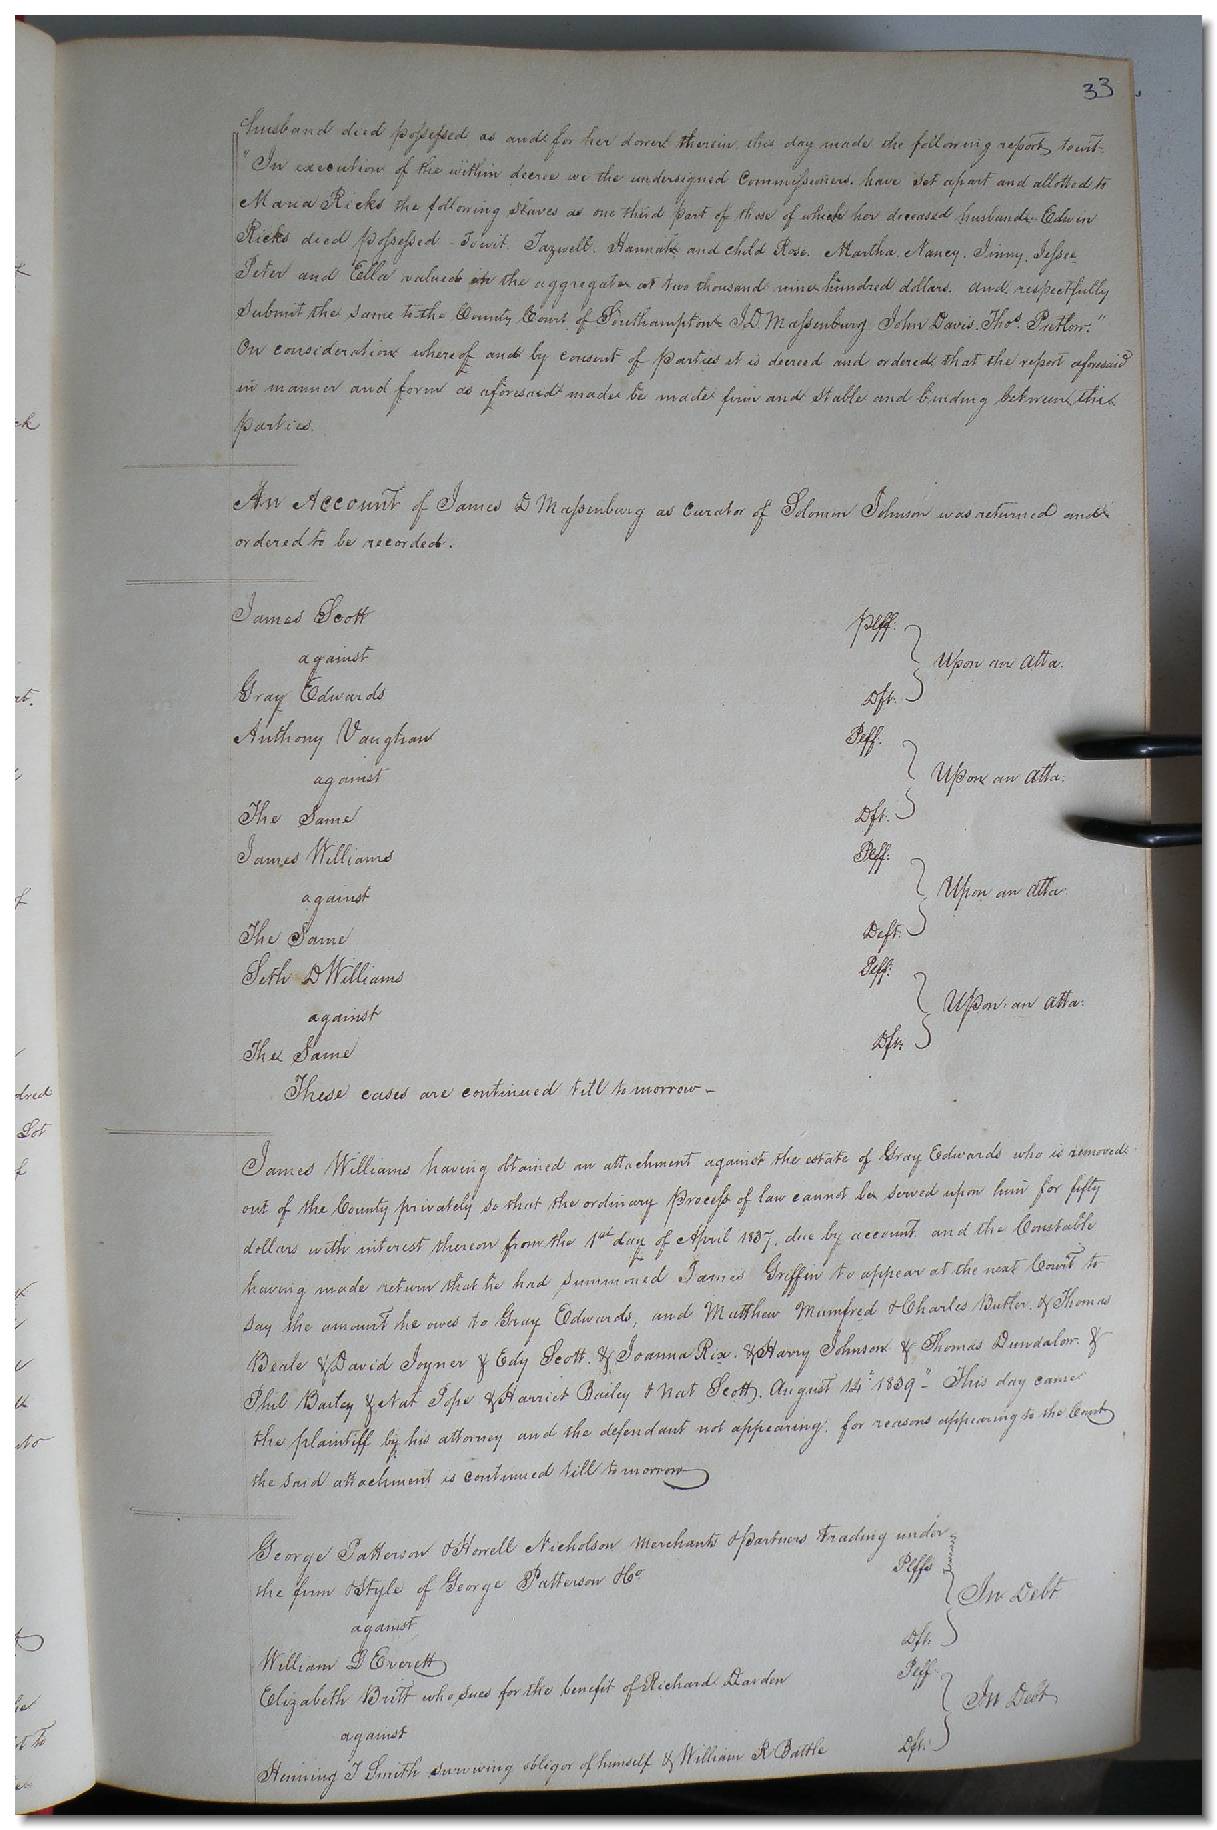 33
husband died possessed as and for her dower therein this day made the following report towit:
"In execution of the within decree we the undersigned Commissioners have set apart and allotted to
Maria Ricks the following slaves as one third part of those of which her deceased husband Edwin
Ricks died possessed - Towit. Tazwell. Hannah and child Rose. Martha. Nancy. Jinny. Jesse
Peter and Ella valued in the aggregate at two thousand nine hundred dollars. and respectfully
Submit the same to the County Court of Southampton J. D. Massenburg John Davis. Thos. Pretlow."
On consideration whereof and by consent of parties it is decreed and ordered that the report aforesaid
in manner and form as aforesaid made be made firm and stable and binding between the
parties.
An Account of James D Massenburg as curator of Solomon Johnson was returned and
ordered to be recorded.
James Scott Plff.
against Upon an Atta.
Gray Edwards Dft.
Anthony Vaughan Plff.
against Upon an Atta.
The Same Dft.
James Williams Plff.
against Upon an Atta
The Same Deft.
Seth D Williams Plff.
against Upon an Atta.
The Same Dft.
These cases are continued till tomorrow -
James Williams having obtained an attachment against the estate of Gray Edwards who is removed
out of the County privately so that the ordinary Process of law cannot be served upon him for fifty
dollars with interest thereon from the 1st day of April 1837. due by account and the Constable
having made return that he had summoned James Griffin to appear at the next Court to
say the amount he owes to Gray Edwards, and Matthew Mumfred & Charles Butler. & Thomas
Beale & David Joyner & Edy Scott. & Joanna Rix. & Harry Johnson & Thomas Dundalow. &
Phil Bailey & Nat Pope & Harriet Bailey & Nat Scott. August 14th 1839" - This day came
the plaintiff by his attorney and the defendant not appearing, for reasons appearing to the Court
the said attachment is continued till tomorrow
George Patterson & Howell Nicholson Merchants & partners trading under
the firm & Style of George Patterson & Co Plffs
against In Debt
William D Everett Dft.
Elizabeth Britt who sues for the benefit of Richard Darden Plff.
against In Debt
Henning T Smith surviving obligor of himself & William R Battle Dft.